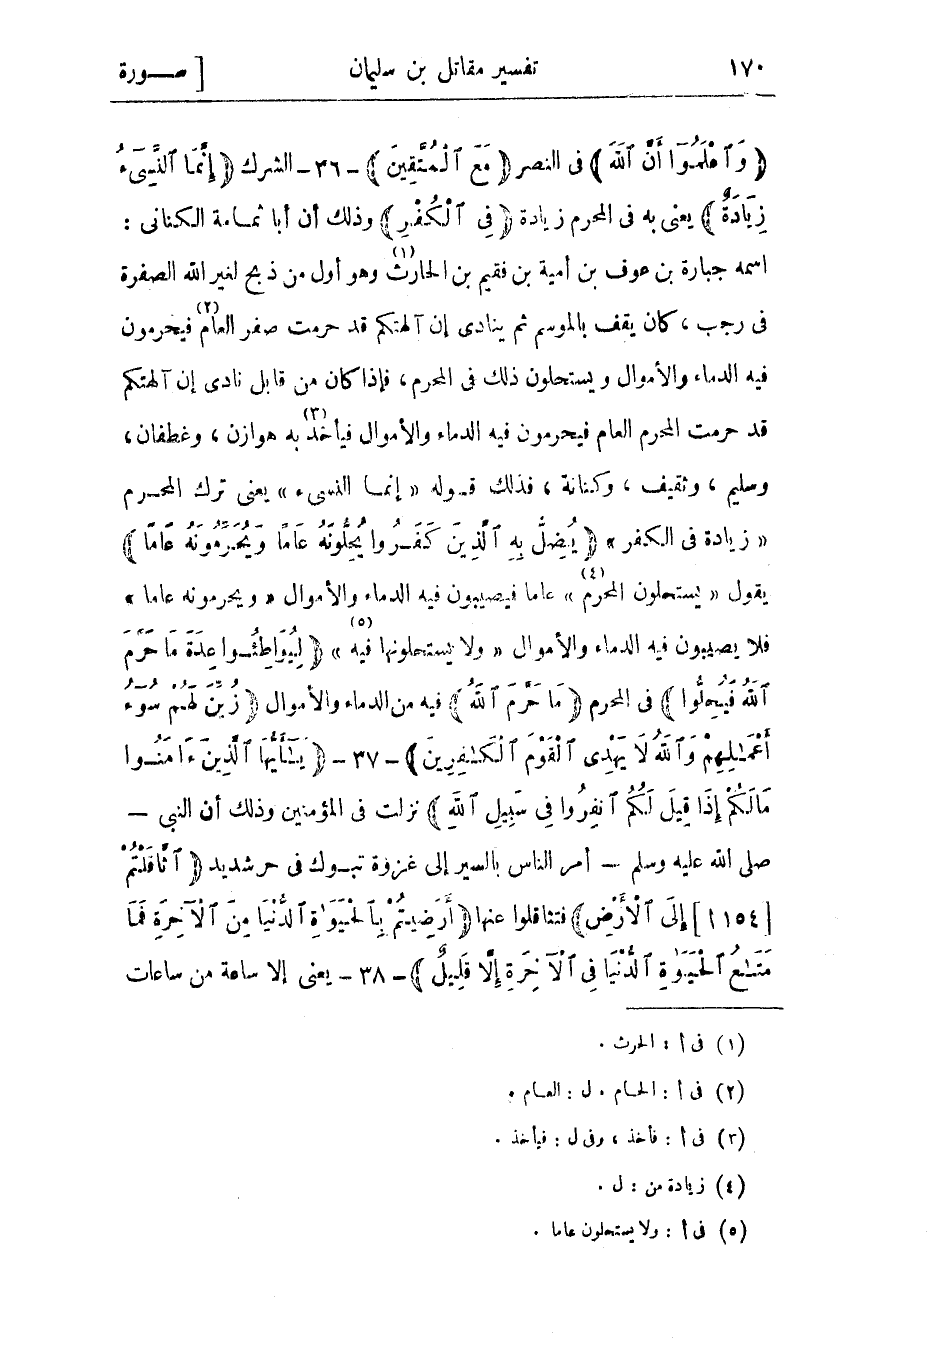 ١٧٠ تفسير مقاتل بن سليمان [ سورة
﴿ وَٱعْلَمُوٓا أَنَّ ٱللَّهَ ﴾ فى النصر ﴿ مَعَ ٱلْمُتَّقِينَ ﴾ ـ ٣٦ ـ الشرك ﴿ إِنَّمَا ٱلنَّسِىٓءُ
زِيَادَةٌ ﴾ يعنى به فى المحرم زيادة ﴿ فِى ٱلْكُفْرِ ﴾ وذلك أن أبا ثمامة الكنانى :
اسمه جبارة بن عوف بن أمية بن فقيم بن الحارث (١) وهو أول من ذبح لغير الله الصفرة
فى رجب ، كان يقف بالموسم ثم ينادى إن آلهتكم قد حرمت صفر العام (٢) فيحرمون
فيه الدماء والأموال ويستحلون ذلك فى المحرم ، فإذا كان من قابل نادى إن آلهتكم
قد حرمت المحرم العام فيحرمون فيه الدماء والأموال فيأخذ (٣) به هوازن ، وغطفان ،
وسليم ، وثقيف ، وكنانة ، فذلك قوله « إنما النسىء » يعنى ترك المحرم
« زيادة فى الكفر » ﴿ يُضِلُّ بِهِ ٱلَّذِينَ كَفَرُوا يُحِلُّونَهُ عَامًا وَيُحَرِّمُونَهُ عَامًا ﴾
يقول « يستحلون المحرم (٤) » عاما فيصيبون فيه الدماء والأموال « ويحرمونه عاما »
فلا يصيبون فيه الدماء والأموال « ولا يستحلونها فيه (٥) » ﴿ لِيُوَاطِئُوا عِدَّةَ مَا حَرَّمَ
ٱللَّهُ فَيُحِلُّوا ﴾ فى المحرم ﴿ مَا حَرَّمَ ٱللَّهُ ﴾ فيه من الدماء والأموال ﴿ زُيِّنَ لَهُمْ سُوٓءُ
أَعْمَـٰلِهِمْ وَٱللَّهُ لَا يَهْدِى ٱلْقَوْمَ ٱلْكَـٰفِرِينَ ﴾ ـ ٣٧ ـ ﴿ يَـٰٓأَيُّهَا ٱلَّذِينَ ءَامَنُوا
مَالَكُمْ إِذَا قِيلَ لَكُمُ ٱنفِرُوا فِى سَبِيلِ ٱللَّهِ ﴾ نزلت فى المؤمنين وذلك أن النبى —
صلى الله عليه وسلم — أمر الناس بالسير إلى غزوة تبوك فى حر شديد ﴿ ٱثَّاقَلْتُمْ
[١١٥٤] إِلَى ٱلْأَرْضِ ﴾ فتثاقلوا عنها ﴿ أَرَضِيتُم بِٱلْحَيَوٰةِ ٱلدُّنْيَا مِنَ ٱلْآخِرَةِ فَمَا
مَتَـٰعُ ٱلْحَيَوٰةِ ٱلدُّنْيَا فِى ٱلْآخِرَةِ إِلَّا قَلِيلٌ ﴾ ـ ٣٨ ـ يعنى إلا ساعة من ساعات
(١) فى أ : الحرث .
(٢) فى أ : الحام . ل : العام .
(٣) فى أ : فأخذ ، وفى ل : فيأخذ .
(٤) زيادة من : ل .
(٥) فى أ : ولا يستحلون عاما .